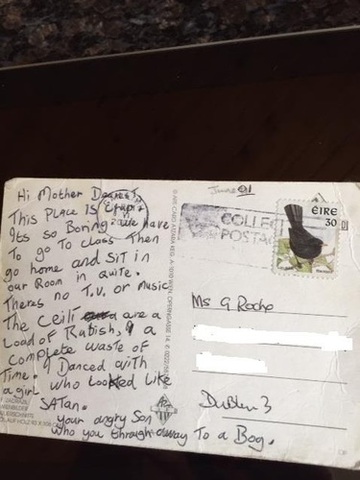 Hi Mother Dearest,
This Place Is Crap.
Its so Boring. we have
To go To class Then
go home and Sit in
our Room in quite.
Theres no T.V. or music
The Ceili are a
Load of Rabish, & a
complete waste of
Time. I Danced with
a girl who looked like
SATan.
your angry Son
who you through away To a Bog.
June 01
COLLEC
POSTA
ÉIRE
30
Ms G Roche
Dublin 3